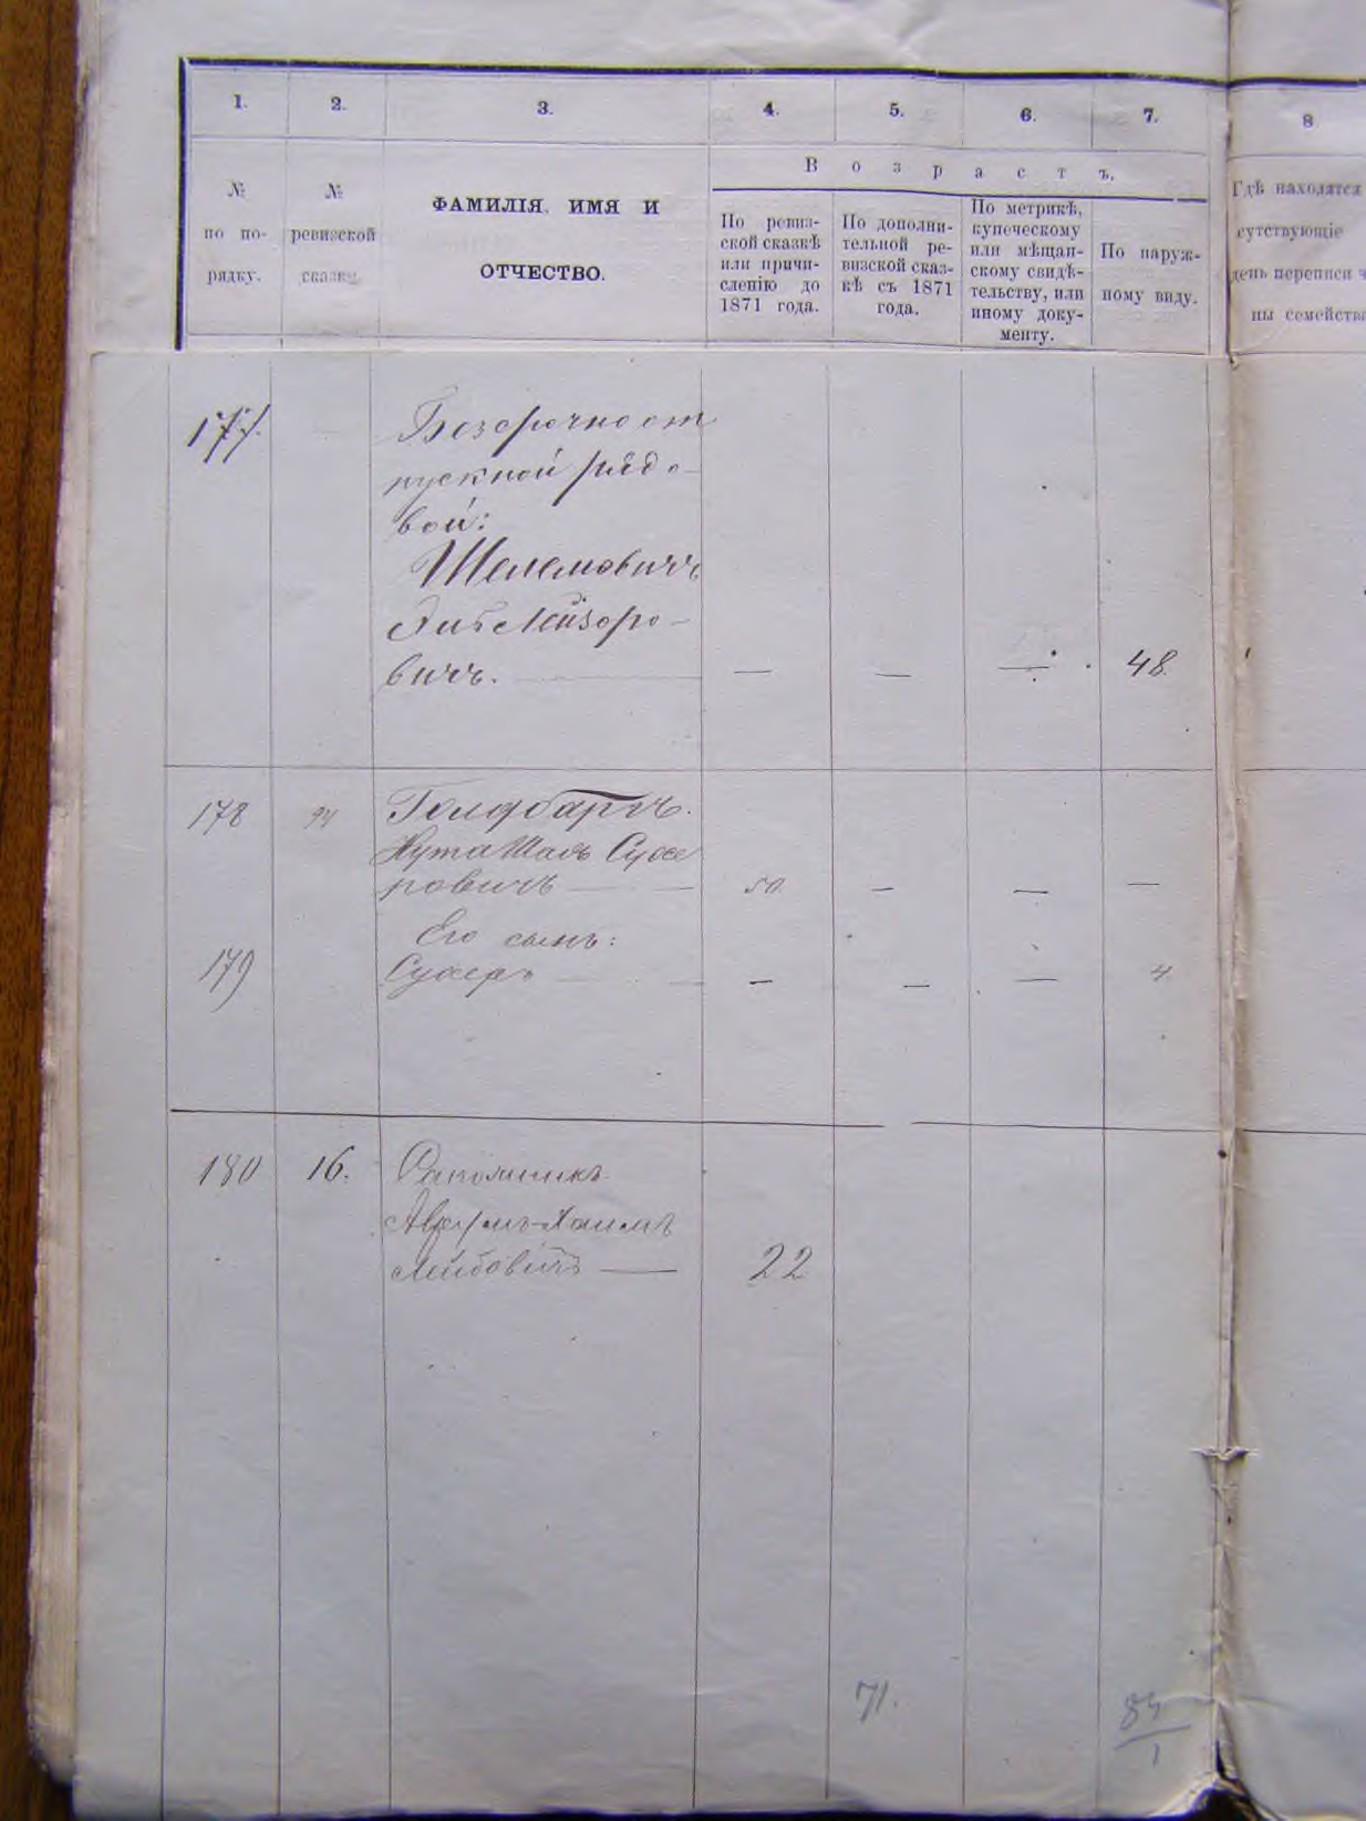 1. 2. 3. 4. 5. 6. 7. 8
В о з р а с т ъ.
№
по по-
рядку.
№
ревизской
сказки.
ФАМИЛІЯ, ИМЯ И
ОТЧЕСТВО.
По ревиз-
ской сказкѣ
или причи-
сленію до
1871 года.
По дополни-
тельной ре-
визской сказ-
кѣ съ 1871
года.
По метрикѣ,
купеческому
или мѣщан-
скому свидѣ-
тельству, или
иному доку-
менту.
По наруж-
ному виду.
Гдѣ находятся
сутствующіе
день переписи ч
ны семейства
177.
Безсрочно от
пускной рядо-
вой:
Шелемовичъ
Лейзоро-
вичъ. — — — 48.
178 94 Голдбартъ.
Нута Шаль Сухе
ровичъ — 50. — — —
Его сынъ:
179 Сухеръ — — — — 4.
180 16. Сапожникъ
Аврумъ-Хаимъ
Лейбовичъ — 22
71.
84
1